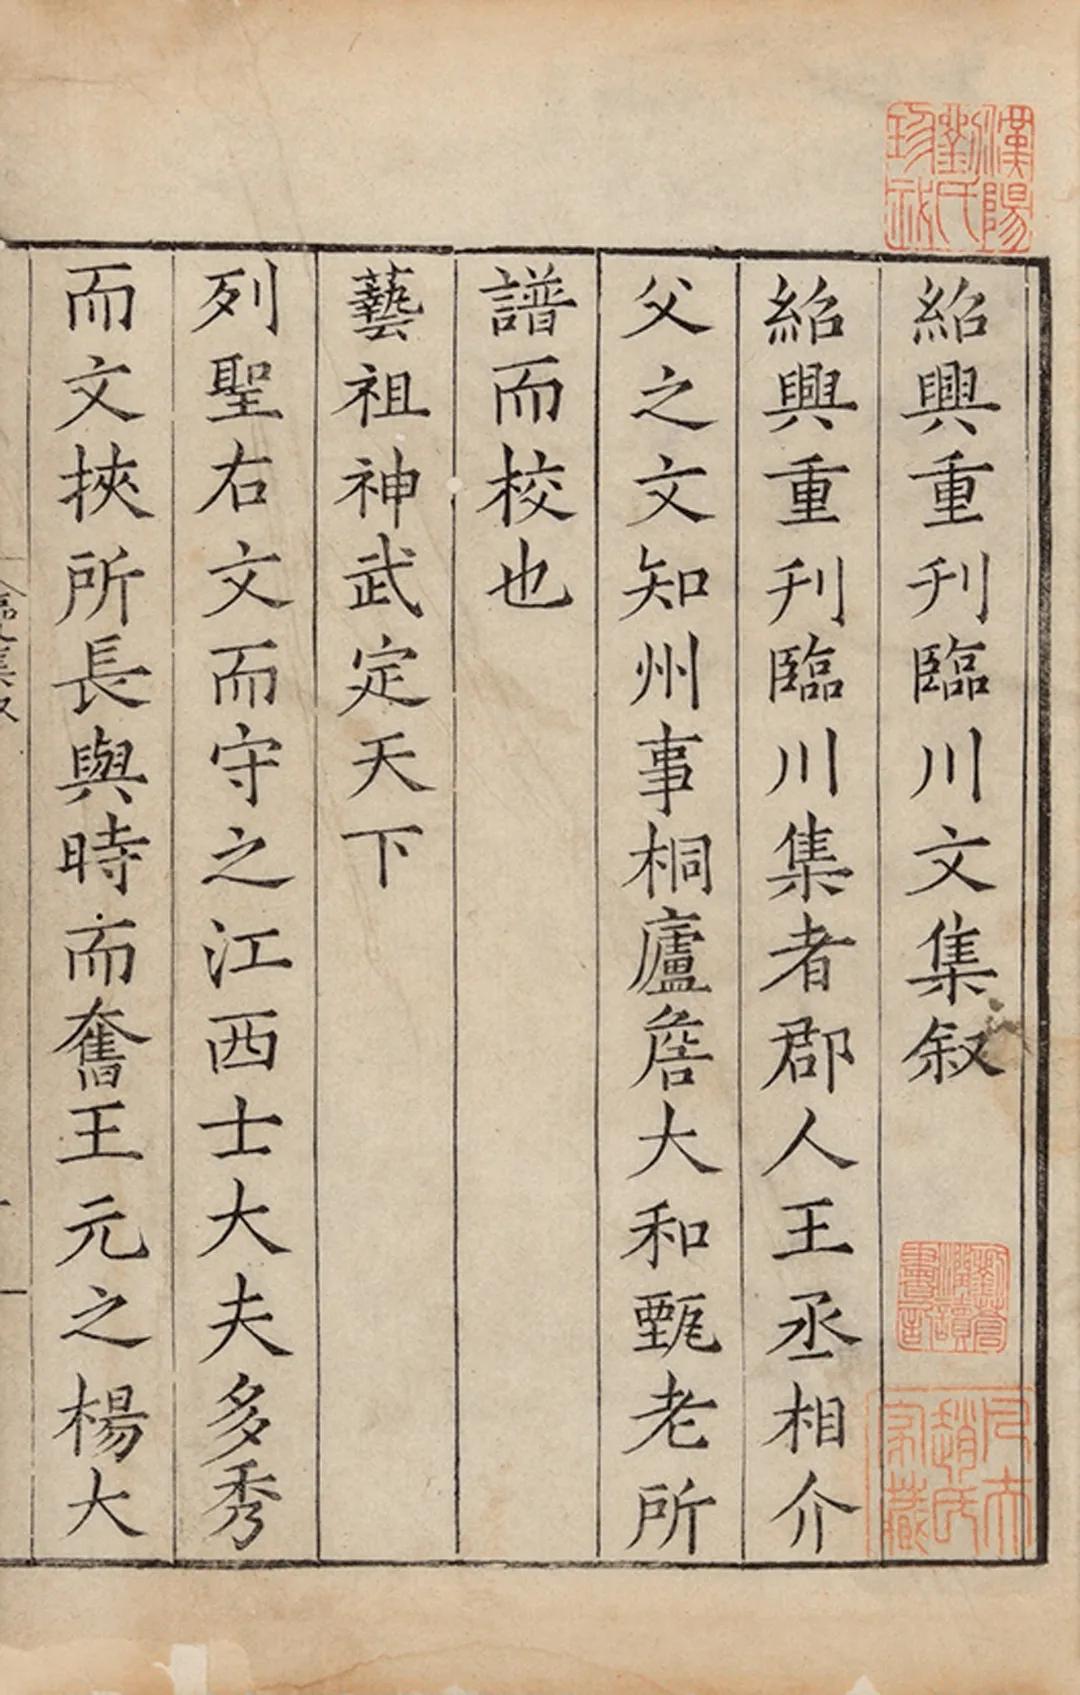 紹興重刊臨川文集叙
紹興重刊臨川集者郡人王丞相介
父之文知州事桐廬詹大和甄老所
譜而校也
藝祖神武定天下
列聖右文而守之江西士大夫多秀
而文挾所長與時而奮王元之楊大
漢陽劉氏珍祕
趙氏
家藏